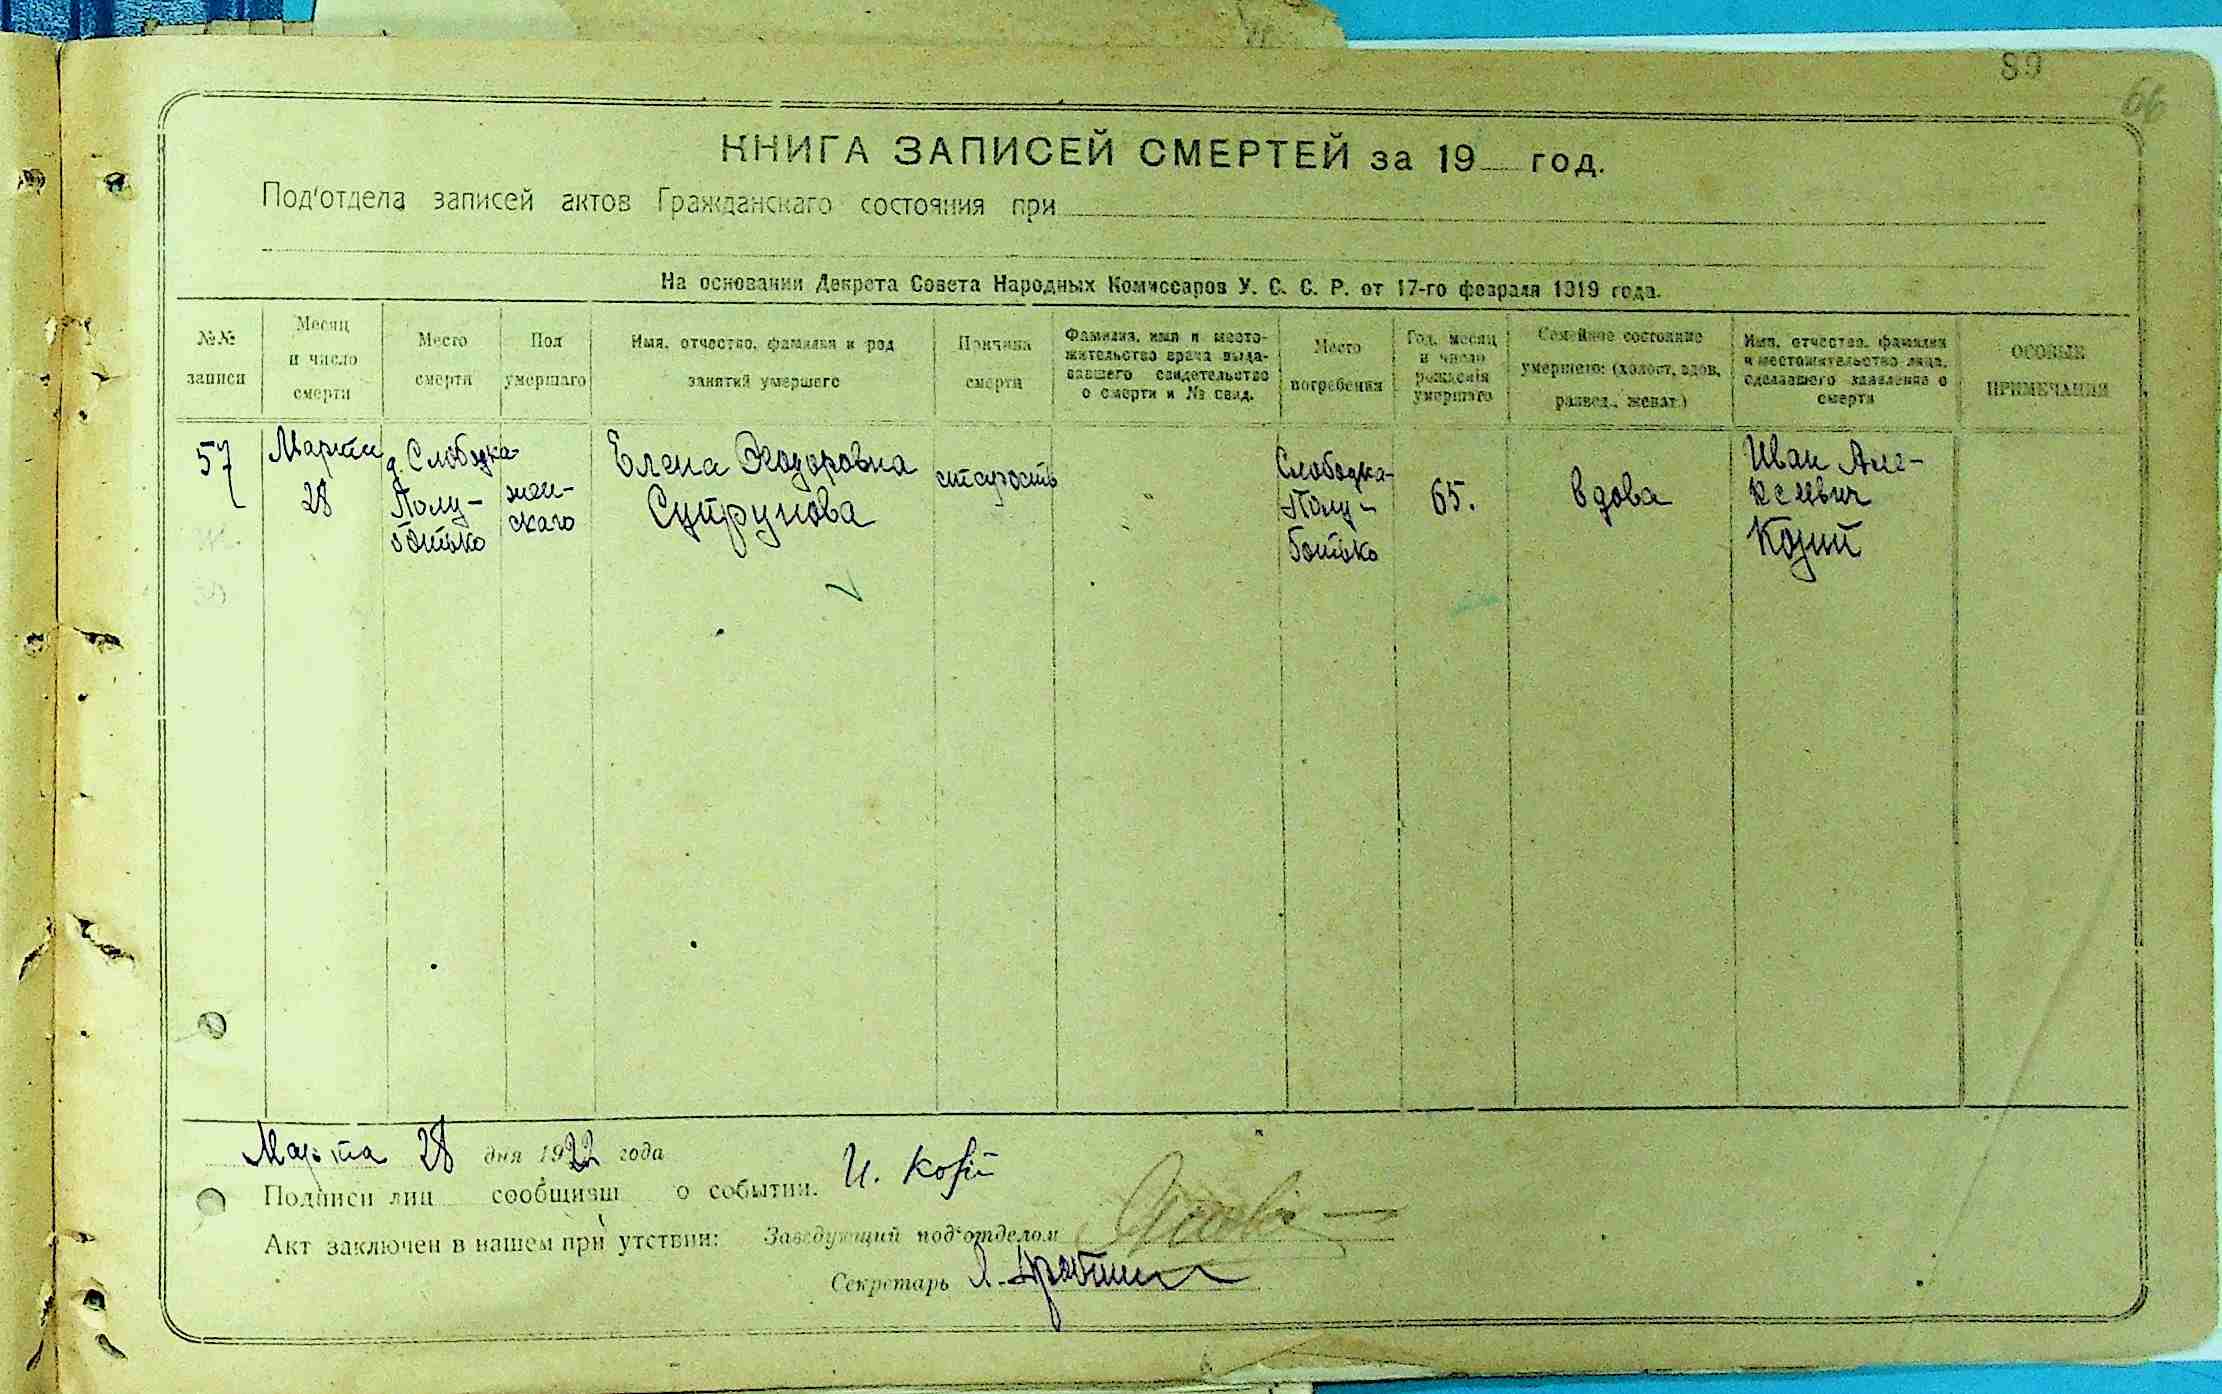 89
66
КНИГА ЗАПИСЕЙ СМЕРТЕЙ за 19 год.
Под'отдела записей актов Гражданскаго состояния при
На основании Декрета Совета Народных Комиссаров У. С. С. Р. от 17-го февраля 1919 года.
№№ записи
Месяц и число смерти
Место смерти
Пол умершаго
Имя, отчество, фамилия и род занятий умершего
Причина смерти
Фамилия, имя и место-
жительство врача выда-
вавшего свидетельство
о смерти и № свид.
Место погребения
Год, месяц и число рождения умершаго
Семейное состояние
умершего: (холост, вдов,
развед., женат.)
Имя, отчество, фамилия
и местожительство лица,
сделавшего заявление о
смерти
ОСОБЫЕ ПРИМЕЧАНИЯ
57
Марта
28
д. Слободка-
Полу-
ботько
жен-
скаго
Елена Феодоровна
Супрунова
старость
"
"
Слободка-
Полу-
ботько
65.
вдова
Иван Але-
ксеевич
Козий
Марта 28 дня 1922 года
Подписи лиц сообщивш о событии. И. Козій
Акт заключен в нашем присутствии: Заведующий под'отделом
Секретарь